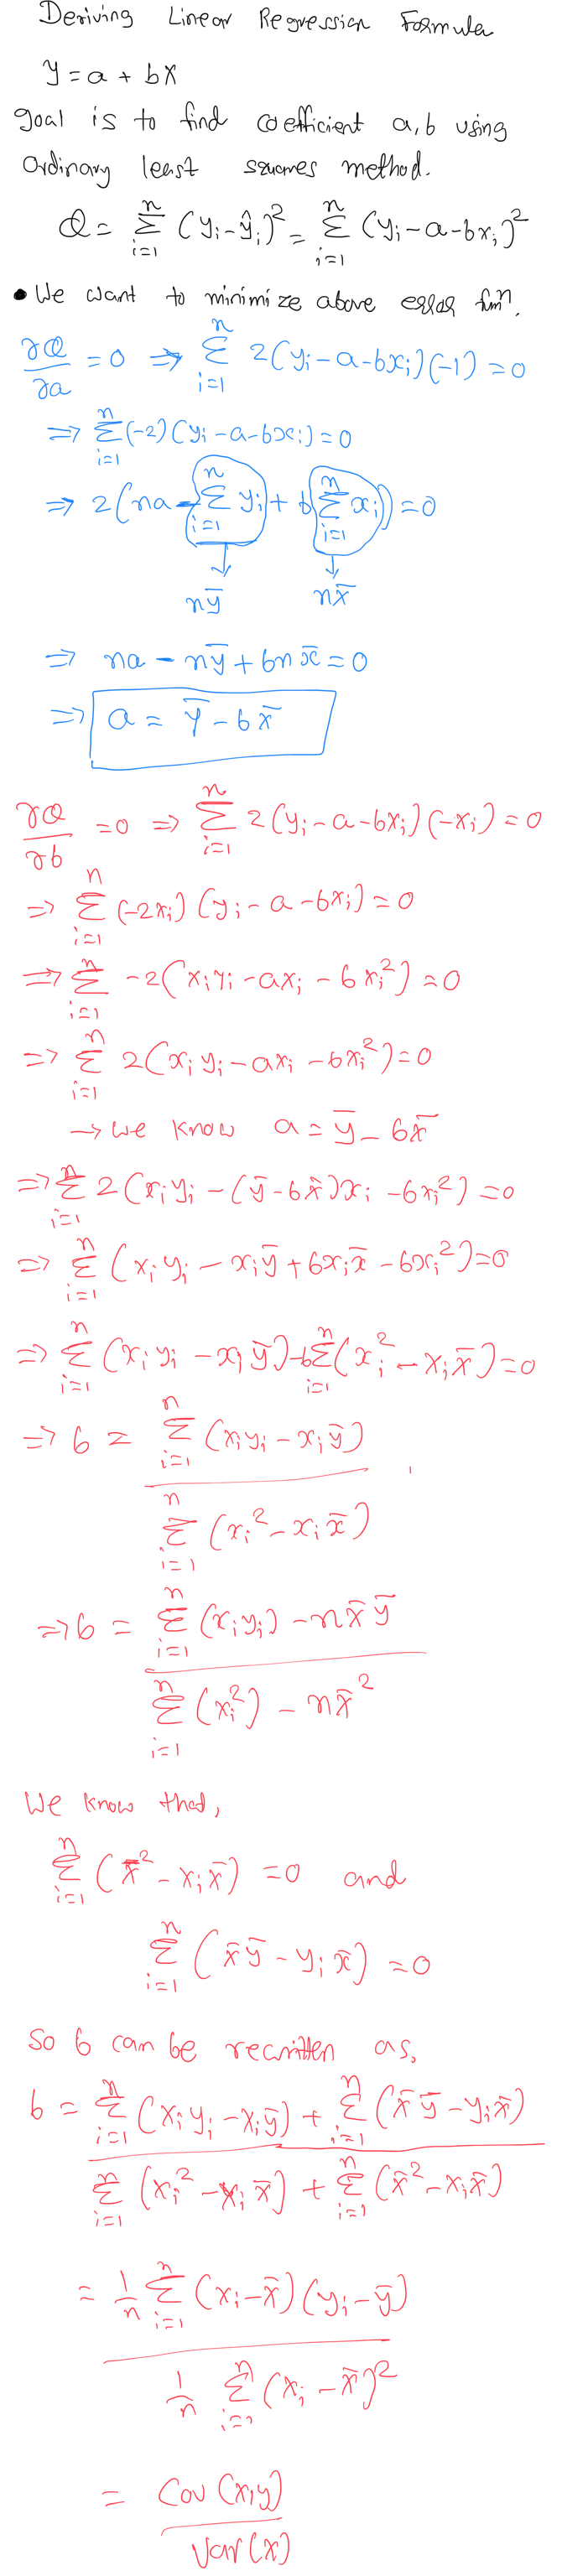 Deriving Linear Regression Formula
y = a + bx
goal is to find coefficient a, b using
Ordinary least squares method.
Q = Σ_{i=1}^{n} (y_i - ŷ_i)² = Σ_{i=1}^{n} (y_i - a - bx_i)²
• We want to minimize above error funⁿ.
∂Q/∂a = 0 ⇒ Σ_{i=1}^{n} 2(y_i - a - bx_i)(-1) = 0
⇒ Σ_{i=1}^{n} (-2)(y_i - a - bx_i) = 0
⇒ 2(na - Σ_{i=1}^{n} y_i + b Σ_{i=1}^{n} x_i) = 0
↓ ↓
nȳ nx̄
⇒ na - nȳ + bnx̄ = 0
⇒ a = ȳ - bx̄
∂Q/∂b = 0 ⇒ Σ_{i=1}^{n} 2(y_i - a - bx_i)(-x_i) = 0
⇒ Σ_{i=1}^{n} (-2x_i)(y_i - a - bx_i) = 0
⇒ Σ_{i=1}^{n} -2(x_i y_i - ax_i - bx_i²) = 0
⇒ Σ_{i=1}^{n} 2(x_i y_i - ax_i - bx_i²) = 0
→ we know a = ȳ - bx̄
⇒ Σ_{i=1}^{n} 2(x_i y_i - (ȳ - bx̄)x_i - bx_i²) = 0
⇒ Σ_{i=1}^{n} (x_i y_i - x_i ȳ + bx_i x̄ - bx_i²) = 0
⇒ Σ_{i=1}^{n} (x_i y_i - x_i ȳ) - b Σ_{i=1}^{n} (x_i² - x_i x̄) = 0
⇒ b = Σ_{i=1}^{n} (x_i y_i - x_i ȳ) / Σ_{i=1}^{n} (x_i² - x_i x̄)
⇒ b = Σ_{i=1}^{n} (x_i y_i) - nx̄ȳ / Σ_{i=1}^{n} (x_i²) - nx̄²
We know that,
Σ_{i=1}^{n} (x̄² - x_i x̄) = 0 and
Σ_{i=1}^{n} (x̄ȳ - y_i x̄) = 0
So b can be rewritten as,
b = Σ_{i=1}^{n} (x_i y_i - x_i ȳ) + Σ_{i=1}^{n} (x̄ȳ - y_i x̄) / Σ_{i=1}^{n} (x_i² - x_i x̄) + Σ_{i=1}^{n} (x̄² - x_i x̄)
= 1/n Σ_{i=1}^{n} (x_i - x̄)(y_i - ȳ) / 1/n Σ_{i=1}^{n} (x_i - x̄)²
= Cov(x,y) / Var(x)